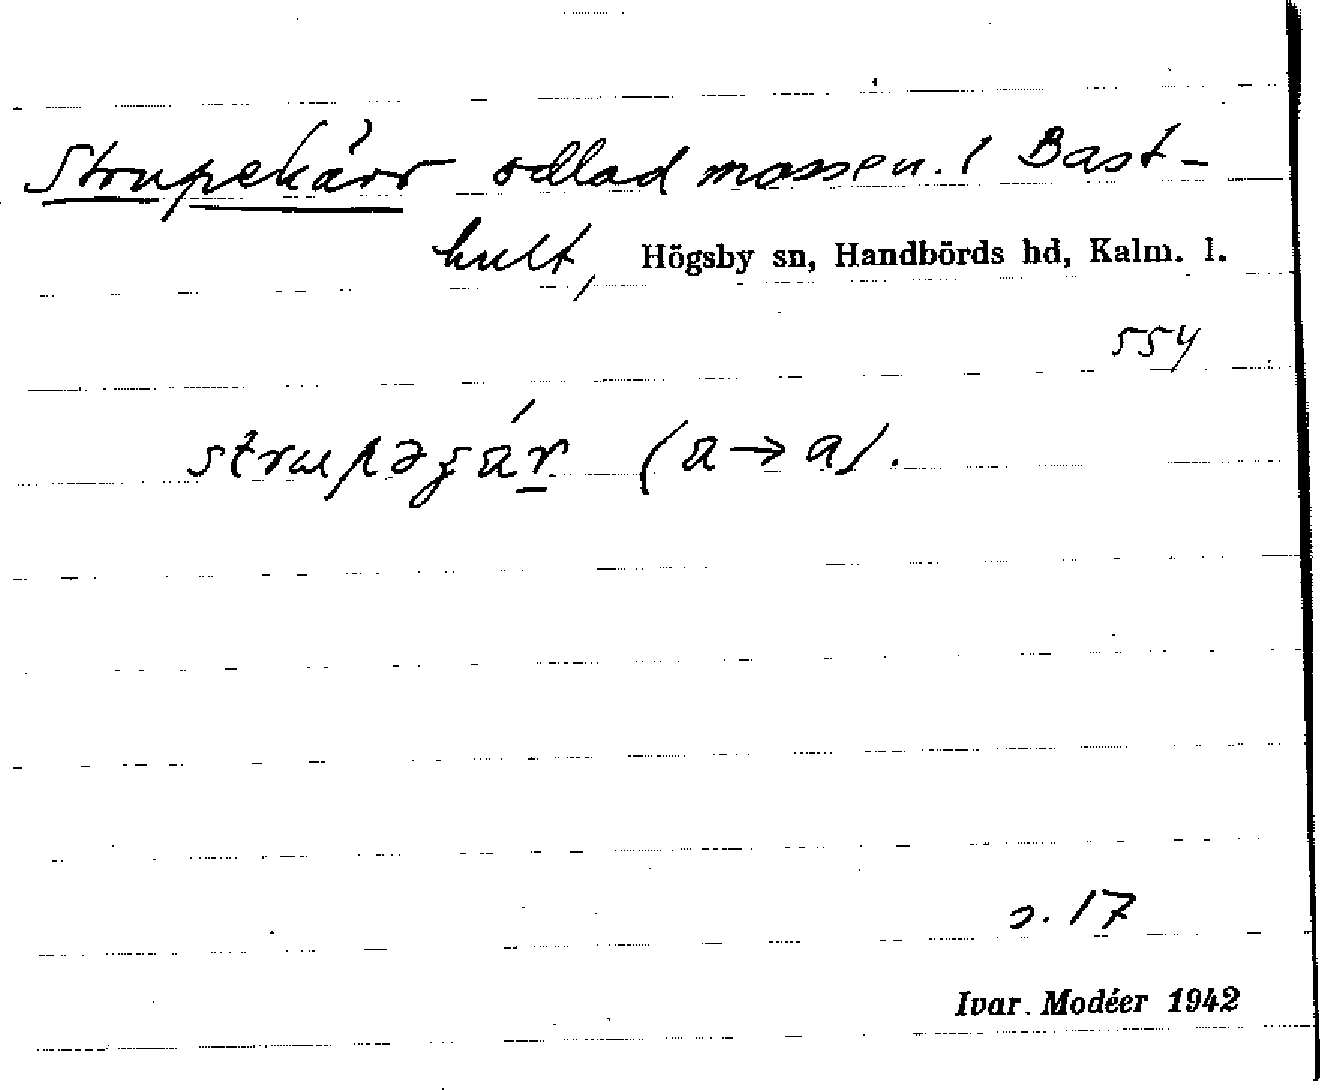 Strupekärr odlad mossen. / Bast-
hult, Högsby sn, Handbörds hd, Kalm. l.
554
strupəʒár (a→a).
s. 17
Ivar Modéer 1942